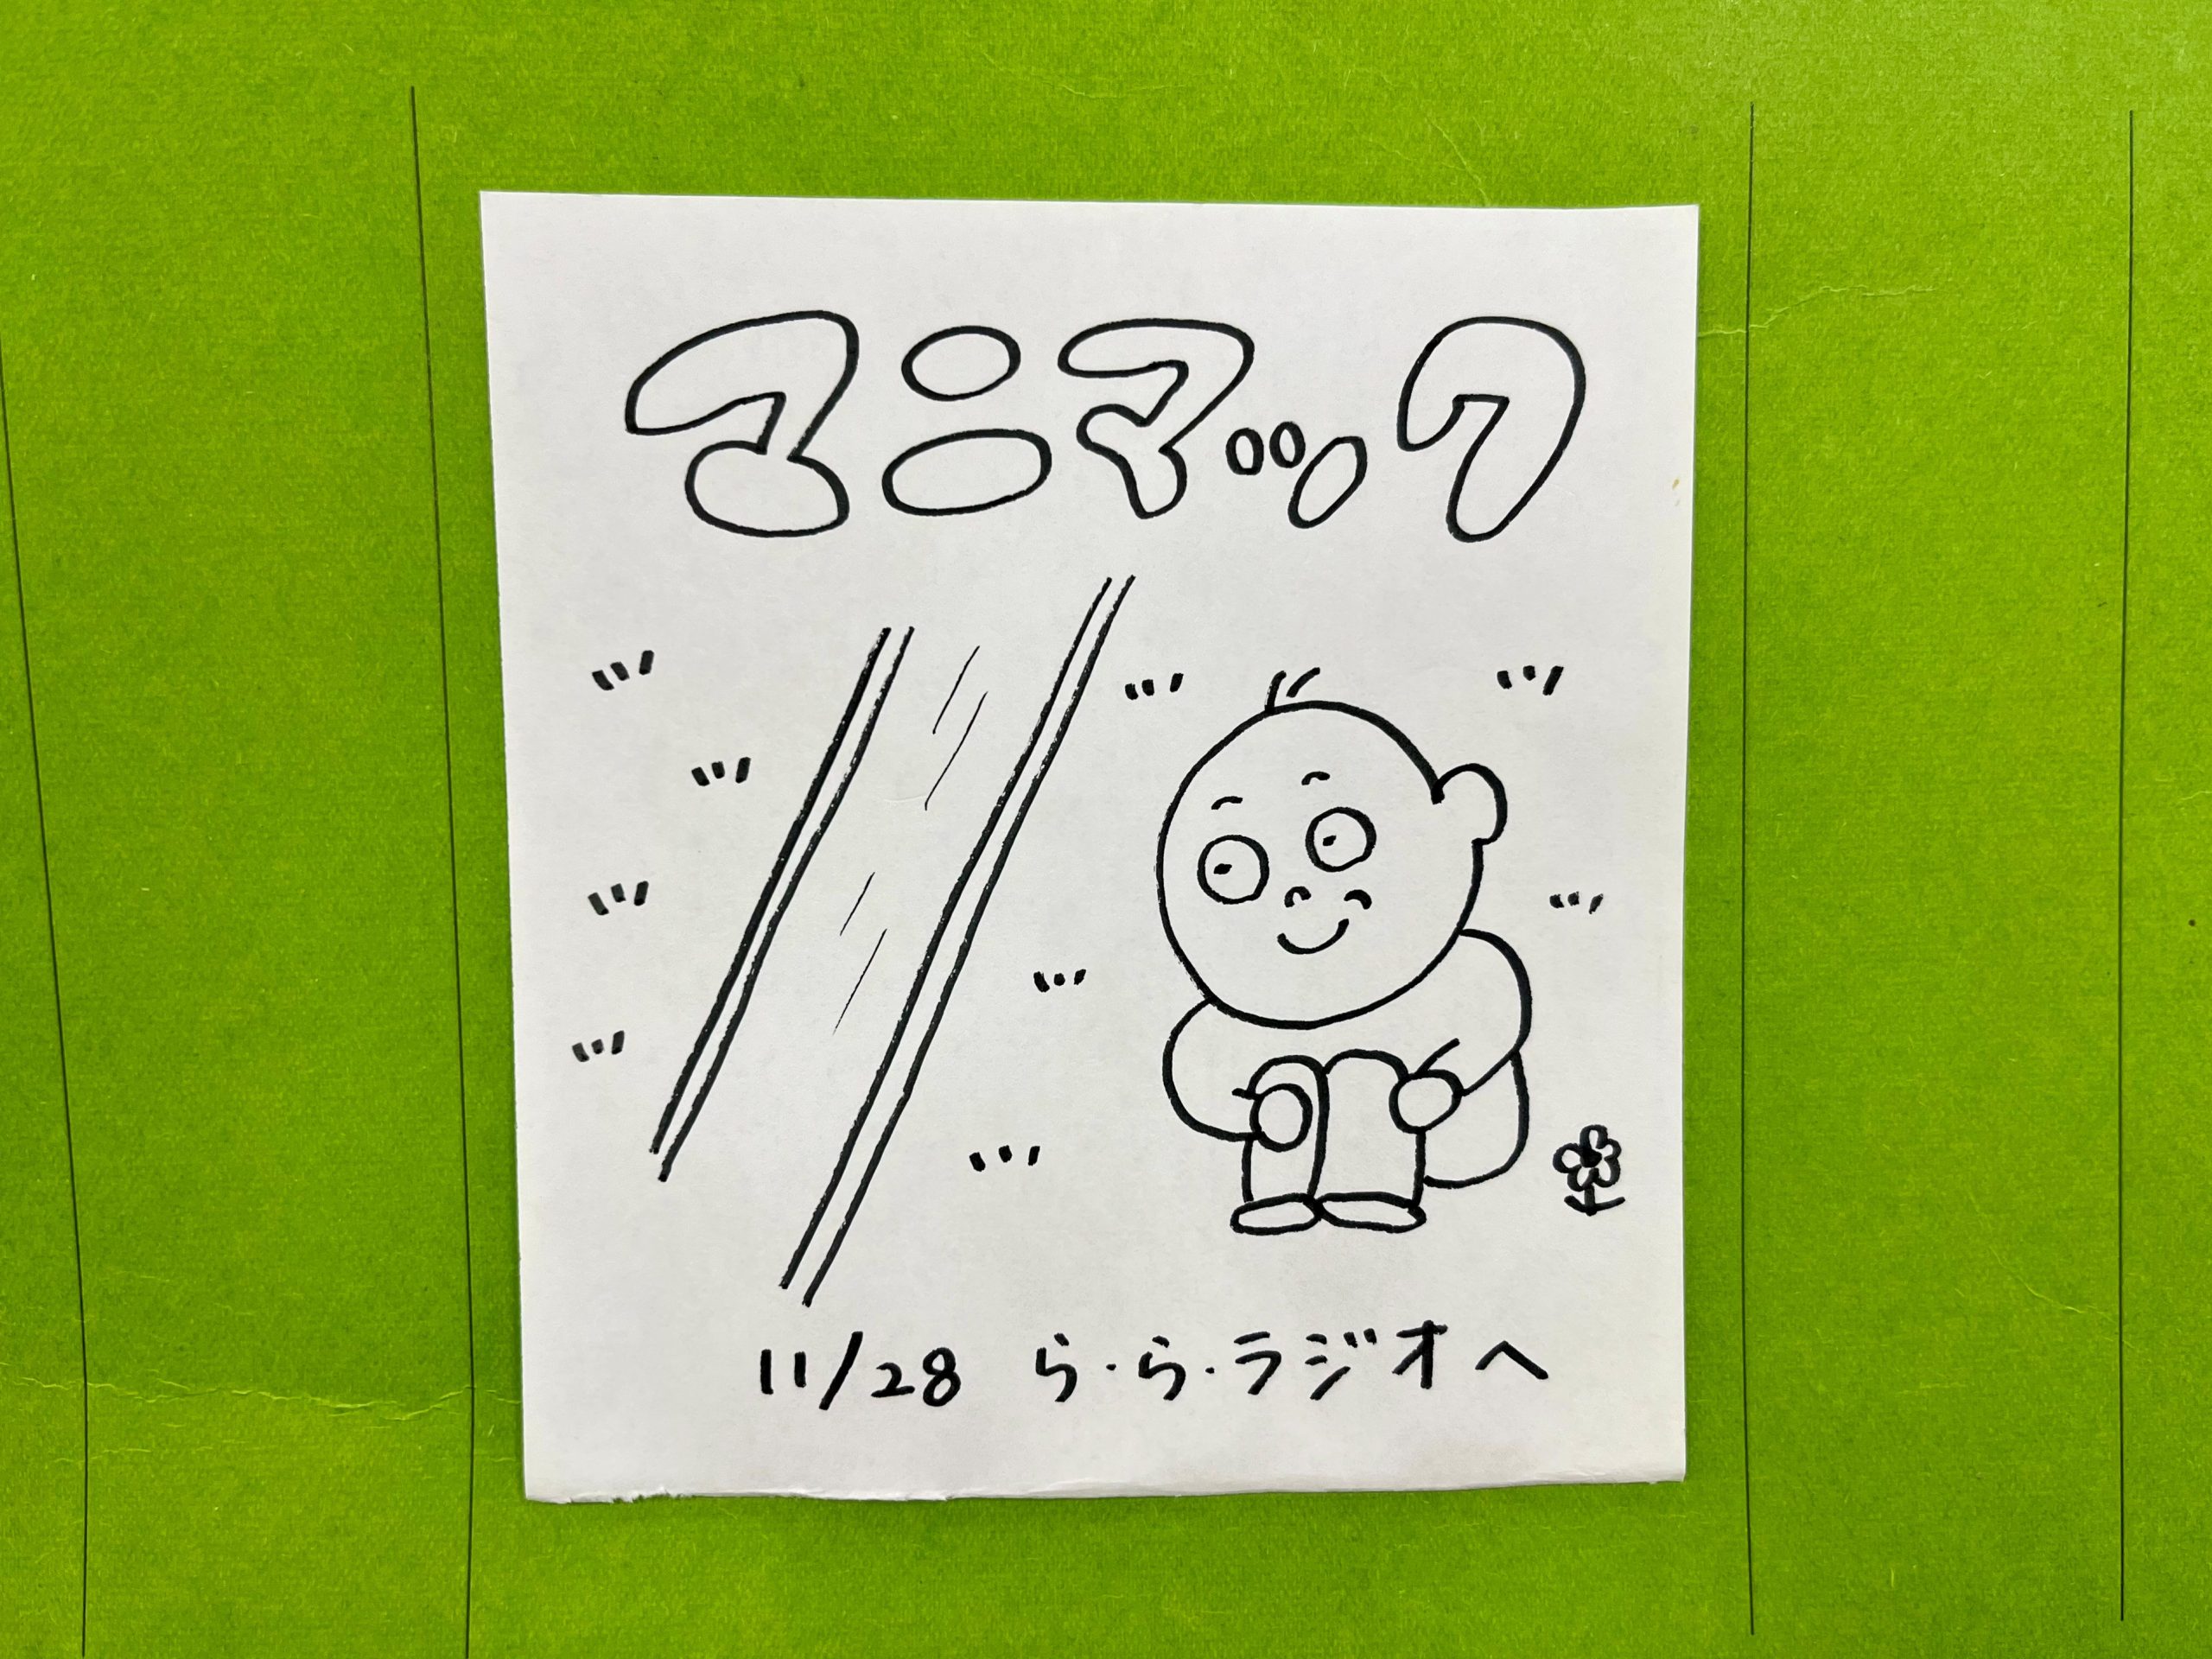 コニマック
11/28 ら・ら・ラジオへ